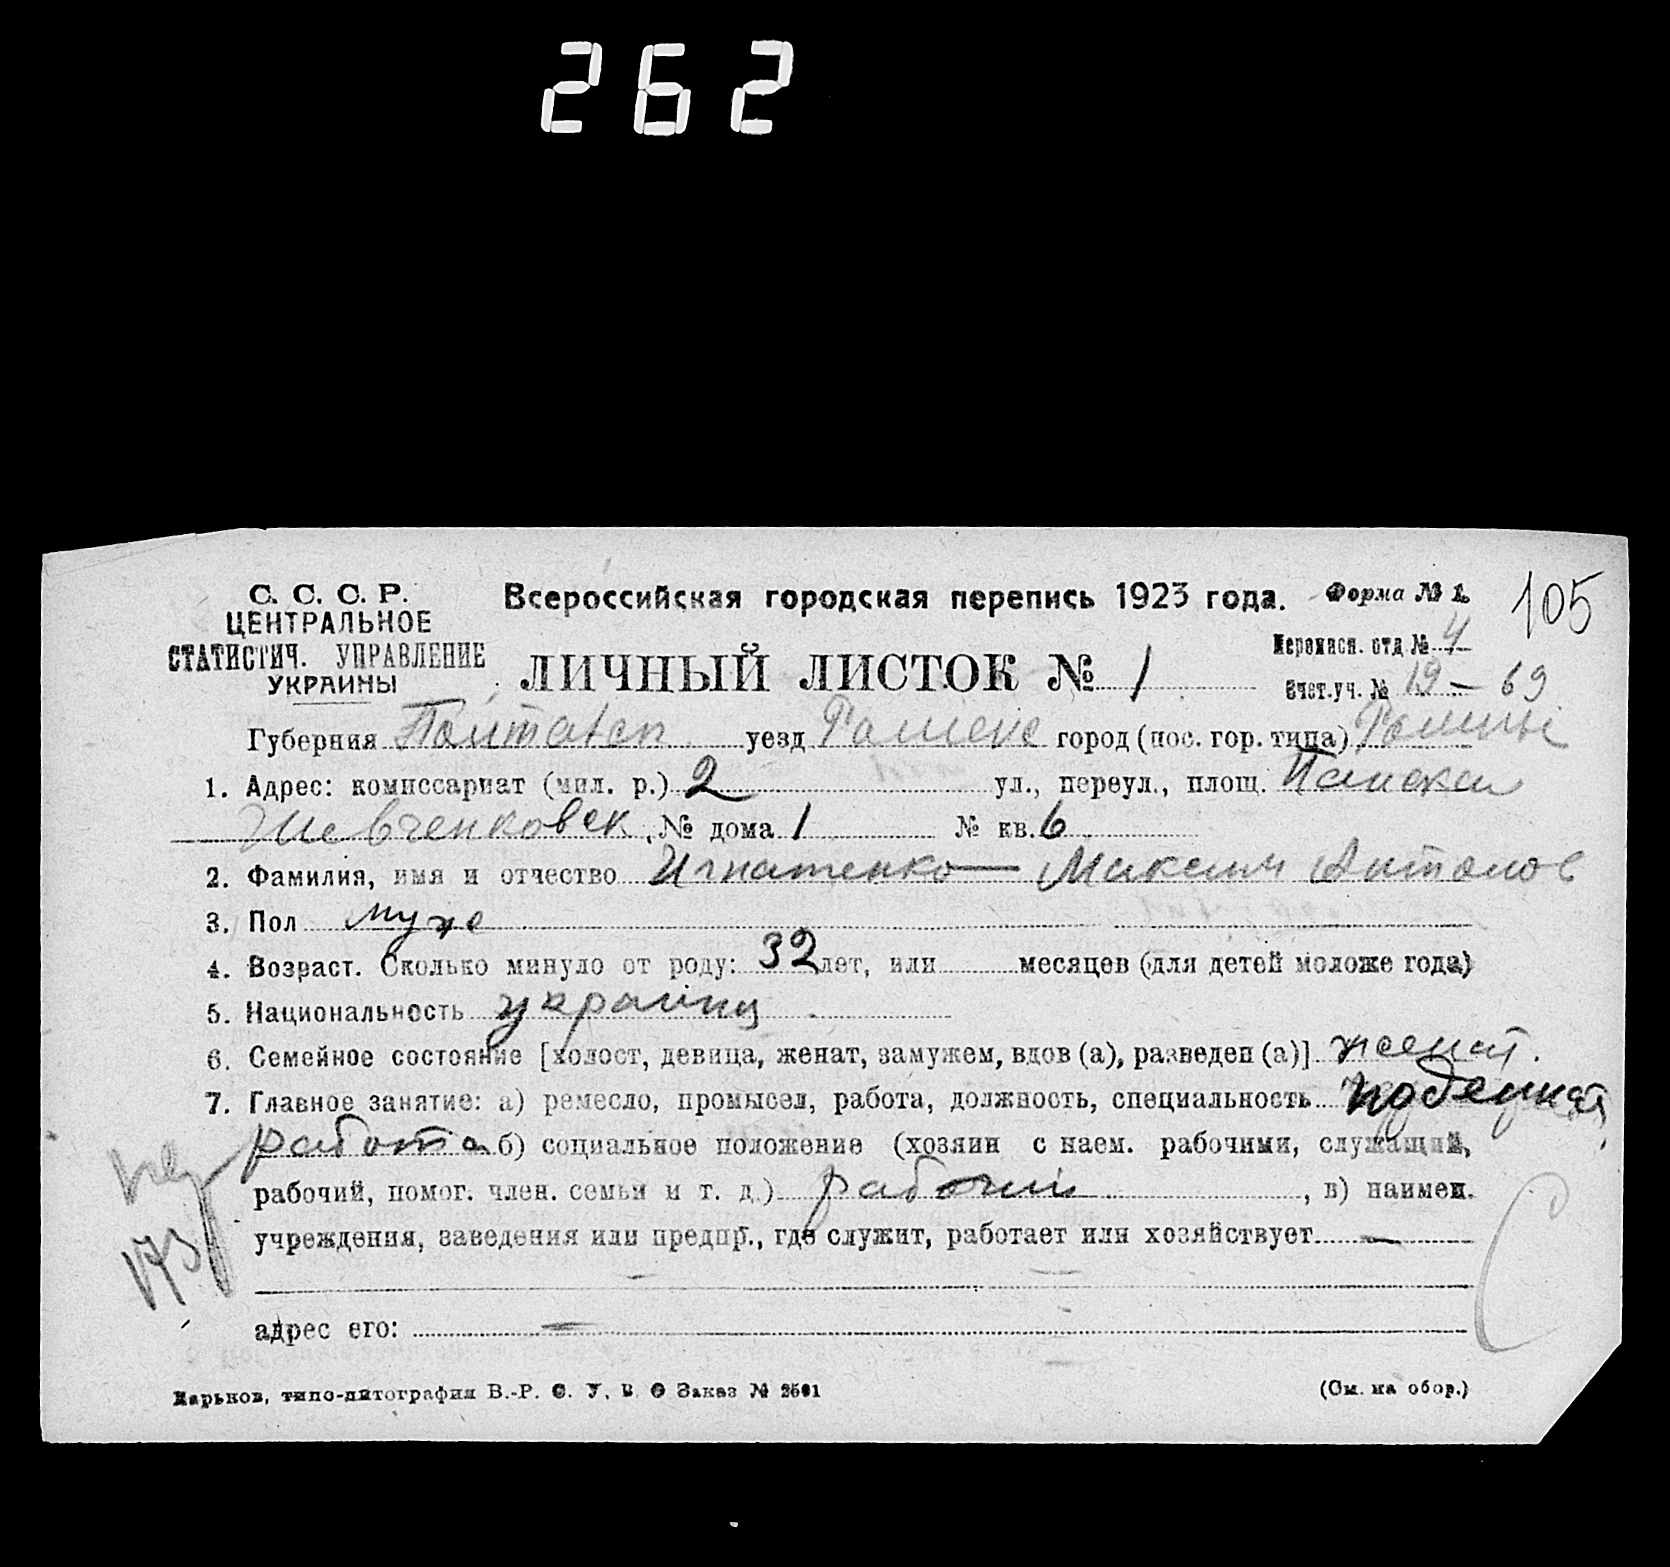 262
С. С. С. Р.
ЦЕНТРАЛЬНОЕ
СТАТИСТИЧ. УПРАВЛЕНИЕ
УКРАИНЫ
Всероссийская городская перепись 1923 года.
Форма № 1.
105
ЛИЧНЫЙ ЛИСТОК № 1
Переписн. отд. № 4
Счет. уч. № 19 – 69
Губерния Полтавск уезд Роменс город (пос. гор. типа) Ромны
1. Адрес: комиссариат (мил. р.) 2 ул., переул., площ.
Шевченковск, № дома 1 № кв. 6
2. Фамилия, имя и отчество Игнатенко — Максим Антонов
3. Пол муж
4. Возраст. Сколько минуло от роду: 32 лет, или месяцев (для детей моложе года)
5. Национальность украинц
6. Семейное состояние [холост, девица, женат, замужем, вдов (а), разведен (а)] женат.
7. Главное занятие: а) ремесло, промысел, работа, должность, специальность поденная
работа б) социальное положение (хозяин с наем. рабочими, служащий,
рабочий, помог. член. семьи и т. д.) рабочий, в) наимен.
учреждения, заведения или предпр., где служит, работает или хозяйствует —
адрес его: —
173
Харьков, типо-литография В.-Р. С. У. В. О Заказ № 2501
(См. на обор.)